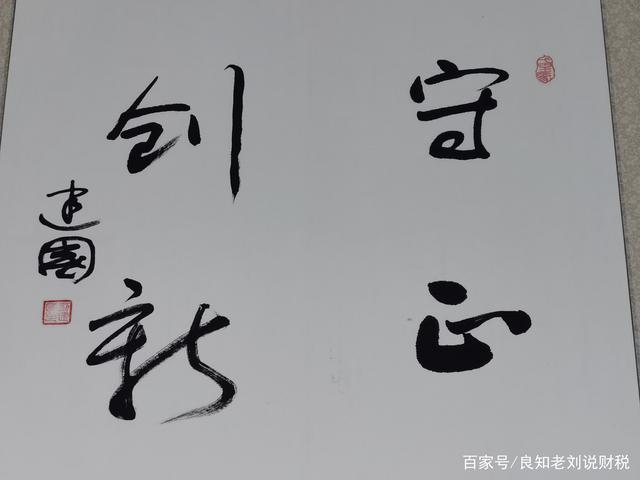 守正
创新
建國
百家号/良知老刘说财税